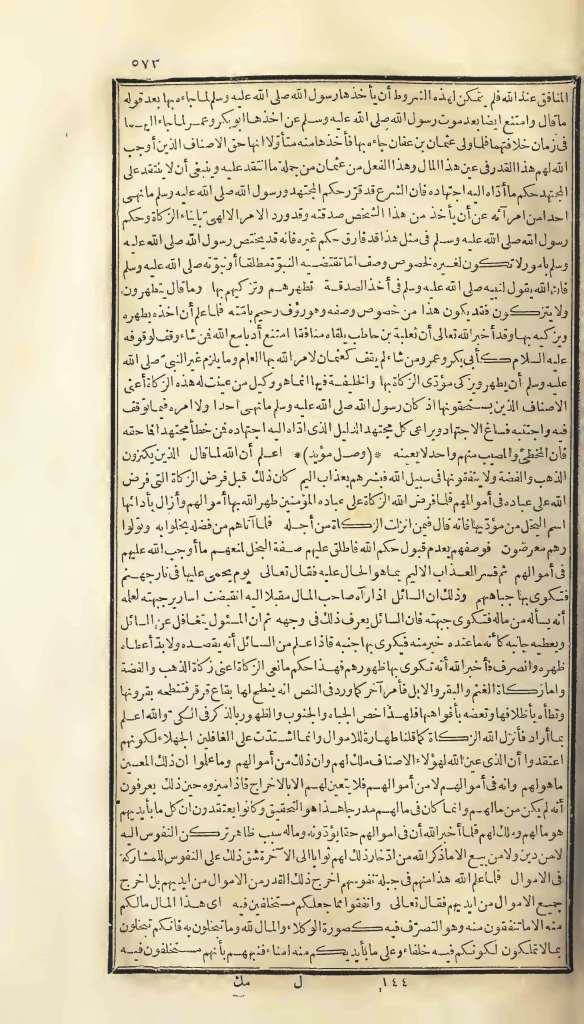 ٥٧٣
المنافق عند الله فلم يتمكن لهذه الشروط أن يأخذها رسول الله صلى الله عليه وسلم لما جاءه بها بعد قوله
ما قال وامتنع ايضا بعد موت رسول الله صلى الله عليه وسلم عن اخذها ابو بكر وعمر لما جاء اليهما بها
فى زمان خلافتهما فلما ولى عثمان بن عفان جاءه بها فأخذها منه متأولا انها حق الاصناف الذين أوجب
الله لهم هذا القدر فى عين هذا المال وهذا الفعل من عثمان من جملة ما انتقد عليه وينبغى أن لا ينتقد على
المجتهد حكم ما أداه اليه اجتهاده فان الشرع قد قرر حكم المجتهد ورسول الله صلى الله عليه وسلم ما نهى
احدا من امرآئه عن أن يأخذ من هذا الشخص صدقته وقد ورد الامر الالهى بايتاء الزكاة وحكم
رسول الله صلى الله عليه وسلم فى مثل هذا قد فارق حكم غيره فانه قد يختص رسول الله صلى الله عليه
وسلم بامور لا تكون لغيره لخصوص وصف اما تقتضيه النبوة مطلقا أو نبوته صلى الله عليه وسلم
فان الله يقول لنبيه صلى الله عليه وسلم فى أخذ الصدقة تطهرهم وتزكيهم بها وما قال يتطهرون
ولا يتزكون فقد يكون هذا من خصوص وصفه وهو رؤف رحيم بامته فلما علم أن اخذه يطهره
ويزكيه بها وقد أخبر الله تعالى أن ثعلبة بن حاطب يلقاه منافقا امتنع أدبا مع الله فمن شاء وقف لوقوفه
عليه السلام كأبى بكر وعمر ومن شاء لم يقف كعثمان لامر الله بها العام وما يلزم غير النبى صلى الله
عليه وسلم أن يطهر ويزكى مؤدى الزكاة بها والخليفة فيها انما هو وكيل من عينت له هذه الزكاة أعنى
الاصناف الذين يستحقونها اذ كان رسول الله صلى الله عليه وسلم ما نهى احدا ولا امره فيما توقف
فيه واجتنبه فساغ الاجتهاد وراعى كل مجتهد الدليل الذى اداه اليه اجتهاده فمن خطأ مجتهدا فما حقه
فان المخطئ والمصيب منهم واحد لا بعينه *(وصل مؤيد)* اعلم أن الله لما قال الذين يكنزون
الذهب والفضة ولا ينفقونها فى سبيل الله فبشرهم بعذاب اليم كان ذلك قبل فرض الزكاة التى فرض
الله على عباده فى أموالهم فلما فرض الله الزكاة على عباده المؤمنين طهر الله بها أموالهم وأزال بأدائها
اسم البخل من مؤديها فانه قال فيمن انزلت الزكاة من أجله فلما آتاهم من فضله بخلوا به وتولوا
وهم معرضون فوصفهم بعدم قبول حكم الله فاطلق عليهم صفة البخل لمنعهم ما أوجب الله عليهم
فى أموالهم ثم فسر العذاب الاليم بما هو الحال عليه فقال تعالى يوم يحمى عليها فى نار جهنم
فتكوى بها جباههم وذلك ان السائل اذا رآه صاحب المال مقبلا اليه انقبضت اسارير جبهته لعلمه
أنه يسأله من ماله فتكوى جبهته فان السائل يعرف ذلك فى وجهه ثم ان المسئول يتغافل عن السائل
ويعطيه جانبه كأنه ما عنده خبر منه فيكوى بها جنبه فاذا علم من السائل أنه يقصده ولا بد أعطاه
ظهره وانصرف فأخبر الله أنه تكوى بها ظهورهم فهذا حكم مانعى الزكاة اعنى زكاة الذهب والفضة
واما زكاة الغنم والبقر والابل فأمر آخر كما ورد فى النص انه ينطح لها بقاع قرقر فتنطحه بقرونها
وتطأه بأظلافها وتعضه بأفواهها فلهذا خص الجباه والجنوب والظهور بالذكر فى الكى والله اعلم
بما أراد فأنزل الله الزكاة كما قلنا طهارة للاموال وانما اشتدت على الغافلين الجهلاء لكونهم
اعتقدوا أن الذى عين الله لهؤلاء الاصناف ملك لهم وان ذلك من أموالهم وما علموا ان ذلك المعين
ما هو لهم وانه فى أموالهم لا من أموالهم فلا يتعين لهم الا بالاخراج فاذا ميزوه حين ذلك يعرفون
أنه لم يكن من مالهم وانما كان فى مالهم مدرجا هذا هو التحقيق وكانوا يعتقدون ان كل ما بأيديهم
هو مالهم وملك لهم فلما أخبر الله أن فى اموالهم حقا يؤدونه وما له سبب ظاهر تركن النفوس اليه
لا من دين ولا من بيع الا ما ذكر الله من ادخار ذلك لهم ثوابا الى الآخرة شق ذلك على النفوس للمشاركة
فى الاموال فلما علم الله هذا منهم فى جبلة نفوسهم اخرج ذلك القدر من الاموال من ايديهم بل اخرج
جميع الاموال من ايديهم فقال تعالى وانفقوا مما جعلكم مستخلفين فيه اى هذا المال مالكم
منه الا ما تنفقون منه وهو التصرف فيه كصورة الوكلاء والمال لله وما تبخلون به فانكم تبخلون
بما لا تملكون لكونكم فيه خلفاء وعلى ما بأيديكم منه امناء فنبههم بأنهم مستخلفون فيه
١٤٤ ل مك